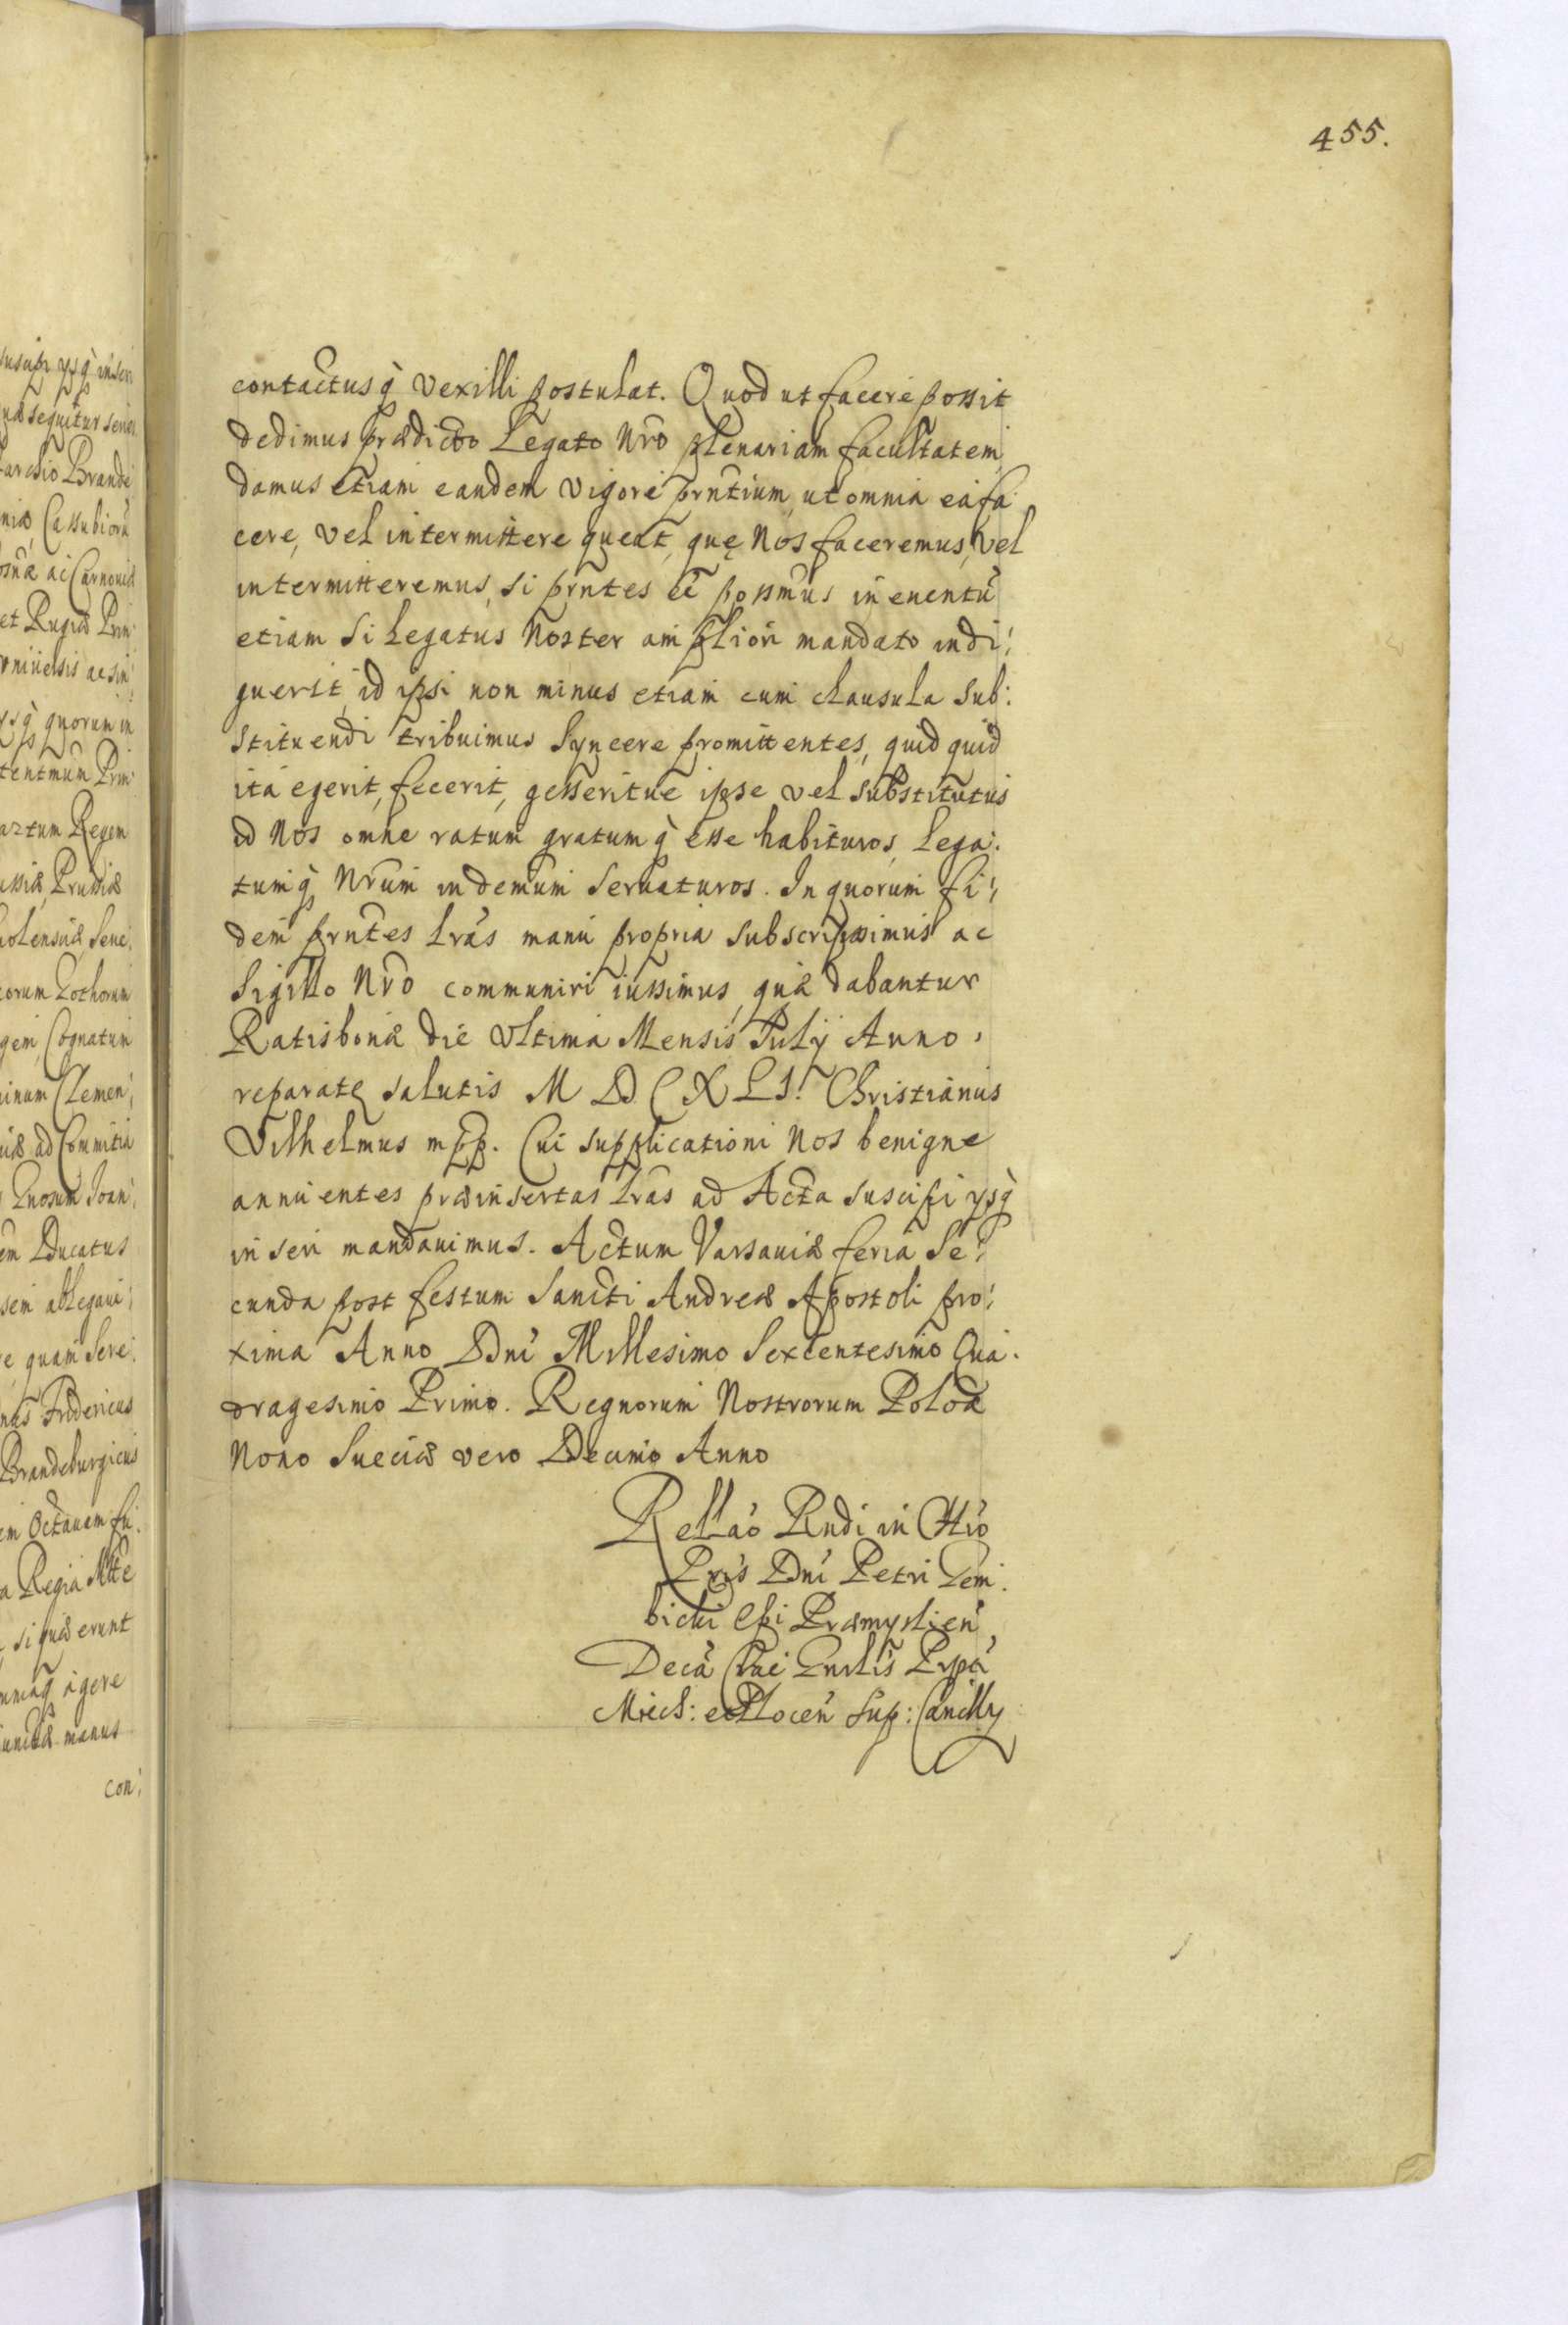 455.
contactusq̀ vexilli postulat. Quod ut facere possit
dedimus prædicto Legato Nro plenariam facultatem,
damus etiam eandem vigore prntium, ut omnia ea fa:
cere, vel intermittere queat, quę Nos faceremus, vel
intermitteremus, si prntes eē possmus in euentū
etiam si Legatus Noster ampliori mandato indi:
guerit, id ipsi non minus etiam cum clausula sub:
stituendi tribuimus syncere promittentes, quid quid
ita egerit, fecerit, gesseritue ipse vel substitutus
id Nos omne ratum gratumq̀ esse habituros, Lega:
tumq̀ Nrum indemum seruaturos. In quorum fi:
dem prntes Lras manu propria subscripsimus ac
Sigillo Nro communiri iussimus, quæ dabantur
Ratisbonæ die Vltima Mensis July Anno
reparatę salutis M D C X L I. Christianus
Vilhelmus mpp. Cui supplicationi Nos benigne
annuentes præinsertas Lras ad Acta suscipi ysq̀
inseri mandauimus. Actum Varsauiæ feria Se:
cunda post festum Sancti Andreæ Apostoli pro:
xima Anno Dni Millesimo Sexcentesimo Qua:
dragesimo Primo. Regnorum Nostrorum Poloæ
Nono Sueciæ vero Decimo Anno
Rellaō Rndi in Chro
Pris Dni Petri Gem:
bicki Epi Præmyslien
Decā Crac Gnrlis Prpti
Miech: et Plocen Sup: Cancllry
susupi ysq̀ inseri
quæ sequitur series
archio Brande
niæ, Cassubiorū
osnæ ac Carnouiæ
et Rugiæ Prin:
vniuersis ac sin:
ysq̀ quorum in
tentmūm Prin:
artum Regem
ussiæ, Prussiæ
olensiæ, Seue:
corum Gothorum
gem, Cognatum
inum Clemen:
iæ ad Commitia
Gnosum Ioan:
em Ducatus
sem ablegaui:
e, quam Sere:
nus Fridericus
Brandeburgicus
em Octauam Iu:
a Regia Mtte
si quæ erunt
mniaq̀ agere
unctæ manus
con: